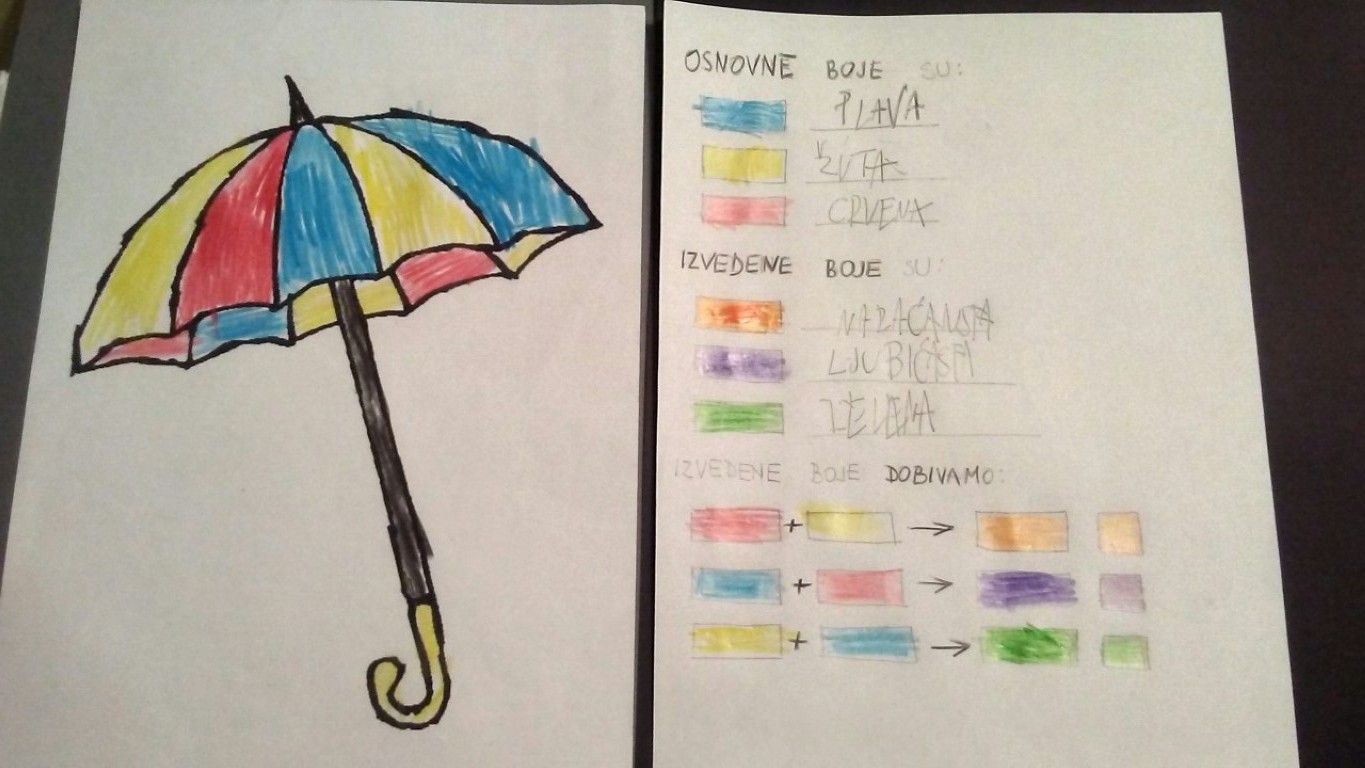 OSNOVNE BOJE SU:
PLAVA
ŽUTA
CRVENA
IZVEDENE BOJE SU:
NARAĆANSTA
LJUBIĆASTA
ZELENA
IZVEDENE BOJE DOBIVAMO:
+ →
+ →
+ →